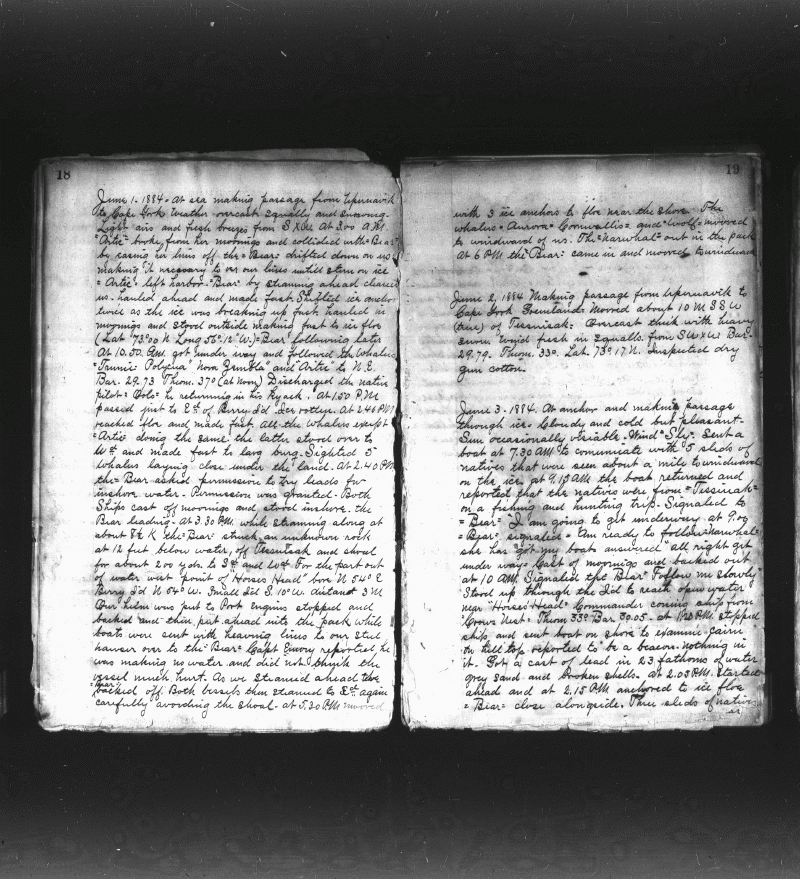 18
June 1. 1884. At sea making passage from Upernavik
to Cape York Weather overcast squally and snowing.
Light airs and fresh breezes from S x W. At 3.00 A.M.
"Artic" broke from her moorings and collided with "Bear"
by easing her lines off the "Bear" drifted down on us
making it necessary to our lines until stern on ice
"Artic" left harbor. "Bear" by steaming ahead cleared
us. hauled ahead and made fast. Shifted ice anchor
twice as the ice was breaking up fast. hauled in
moorings and stood outside making fast to ice floe
(Lat 73°00 N Long 56° 12" W.) "Bear" following later
At 10.50. A.M. got under way and followed the Whalers
"Polynia" "Nova Zembla" and "Artic" to N.E.
Bar. 29.73 Thom. 37° (at Noon) Discharged the native
pilot he returning in his Kyack. At 1.50 P.M.
passed just to Ed of Berry I'd Ice rotten. At 2.40 P.M.
reached floe and made fast. All the whalers except
"Artic" doing the same the latter stood over to
Wd and made fast to large burg. Sighted 5
whalers laying close under the land. At 2.40 P.M
the "Bear" asked permission to try leads for
inshore water. Permission was granted. Both
Ships cast off moorings and stood inshore. the
Bear leading. At 3.30 P.M. while steaming along at
about K the "Bear" struck an unknown rock
at 12 feet below water, off Tessuisak and shoal
for about 200 yds. to Sd and Wd For the part out
of water west point of "Horses Head" bore N 54° E
Berry I'd N 54° W. Small I'd S. 10° W. distant 3 M
Our helm was put to Port engins stopped and
backed and then put ahead into the pack while
boats were sent with heaving lines to our steel
hawser over to the "Bear" Capt Emory reported he
was making no water and did not think the
vessel much hurt. As we steamed ahead the
"Bear" backed off. Both vessels then steamed to Ed again
carefully avoiding the shoal. At 5.30 P.M. moored
19
with 3 ice anchors to floe near the shore The
whalers "Aurora" "Cornwallis" and "Wolf" moored
to windward of us. The "Narwhal" out in the pack
At 6 P.M. the "Bear" came in and moored to windward
June 2, 1884 Making passage from Upernavik to
Cape York Greenland. Moored about 10 M S S W
(true) of Tessuisak. Overcast thick with heavy
snow. Wind fresh in squalls. from SW x W Bar.
29.79. Thom. 33°. Lat. 73° 17 N. Inspected dry
gun cotton.
June 3. 1884. At anchor and making passage
through ice. Cloudy and cold but pleasant.
Sun occasionally visiable. Wind "Sly". Sent a
boat at 7.30 A.M to comunicate with 5 sleds of
natives that were seen about a mile to windward
on the ice, at 9.15 A.M. the boat returned and
reported that the natives were from "Tessuisak"
on a fishing and hunting trip. Signaled to
"Bear" "I am going to get underway at 9.00
"Bear" signaled "Am ready to follow" "Narwhal"
she has "got my boats answered" all right get
under way. Cast off moorings and backed out
at 10 A.M. Signaled the Bear "Follow me slowly"
Stood up through the I'd to reach open water
near "Horses Head" Commander coning ship from
Crows Nest. Thom 33° Bar 30.05. at 1.20 P.M. stopped
ship and sent boat on shore to examine cairn
on hill top reported to be a beacon. nothing in
it. Got a cast of lead in 23 fathoms of water
grey sand and broken shells. At 2.05 P.M. Started
ahead and at 2.15 P.M anchored to ice floe
"Bear" close alongside. Three sleds of natives